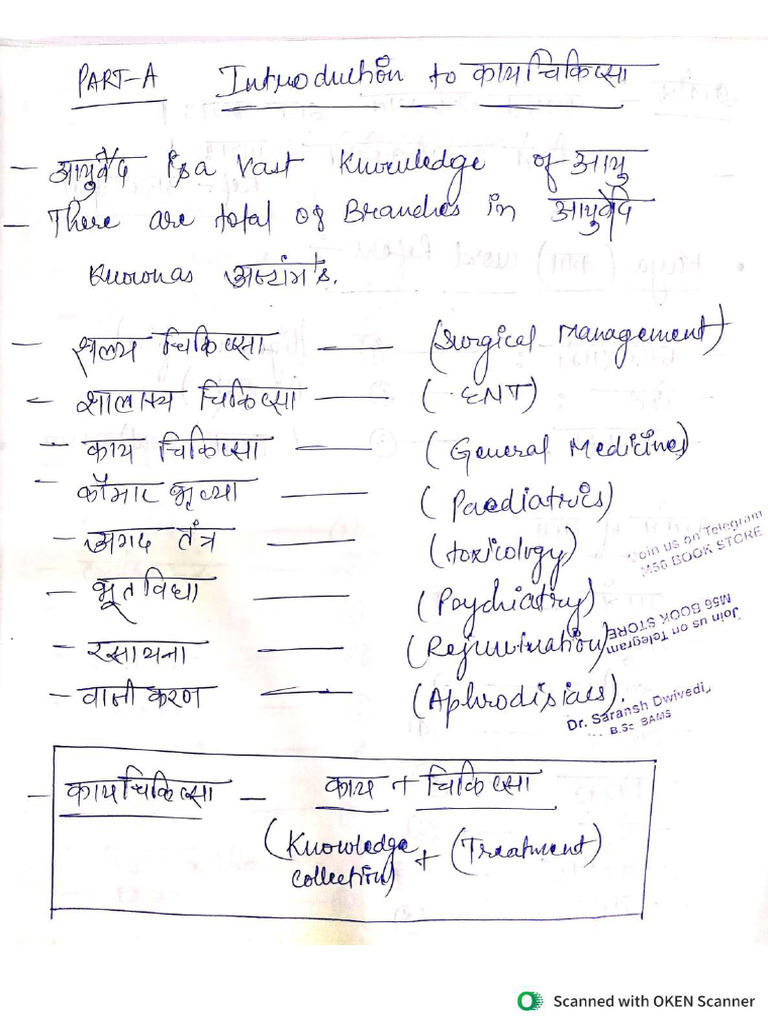 PART-A Introduction to कायचिकित्सा
- आयुर्वेद is a vast knowledge of आयु
- There are total 08 Branches in आयुर्वेद
Known as अष्टांग's.
- शल्य चिकित्सा — (Surgical Management)
- शालाक्य चिकित्सा — (ENT)
- काय चिकित्सा — (General Medicines)
- कौमार भृत्या — (Paediatrics)
- अगद तंत्र — (toxicology)
- भूतविधा — (Psychiatry)
- रसायना — (Rejuvination)
- वाजीकरण — (Aphrodisiacs).
Join us on Telegram
M56 BOOK STORE
Join us on Telegram
M56 BOOK STORE
Dr. Saransh Dwivedi
B.Sc BAMS
- कायचिकित्सा — काय + चिकित्सा
(Knowledge + (Treatment)
collection)
Scanned with OKEN Scanner